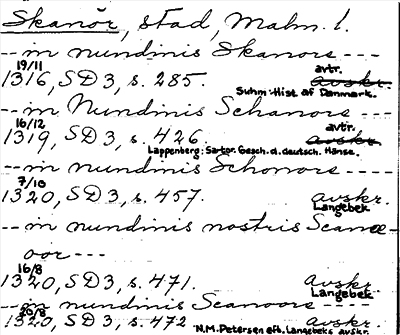 Skanör, stad, Malm. l.
--in nundinis Skanors ---
19/11 avtr.
1316, SD 3, s. 285. avskr.
Suhm: Hist af Danmark.
--in Nundinis Schanors ---
16/12 avtr.
1319, SD 3, s. 426. avskr.
Lappenberg: Sartor. Gesch. d. deutsch. Hanse.
--in nundinis Schonors ---
7/10
1320, SD 3, s. 457. avskr.
Langebek
--in nundinis nostris Scanoe-
oor ---
16/8
1320, SD 3, s. 471. avskr.
Langebek
--in nundinis Scanoors ---
20/8
1320, SD 3, s. 472 avskr.
N.M. Petersen eft. Langebeks avskr.